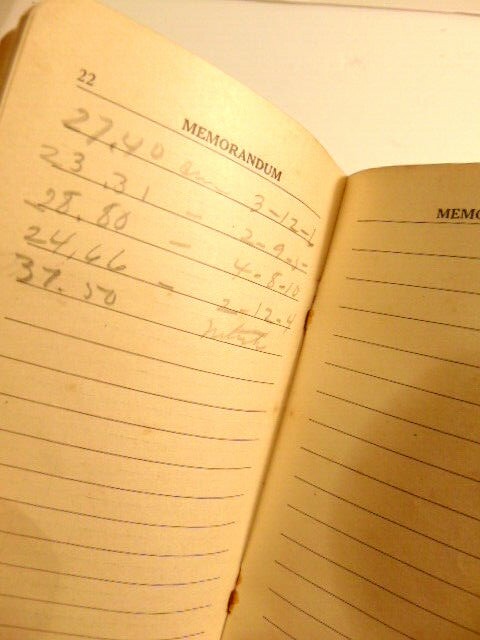 22
MEMORANDUM
27.40 3-12-1
23.31 - 2-9-1-
28.80 - 4-8-10
24,66 - 2-12-4
37.50
MEMO